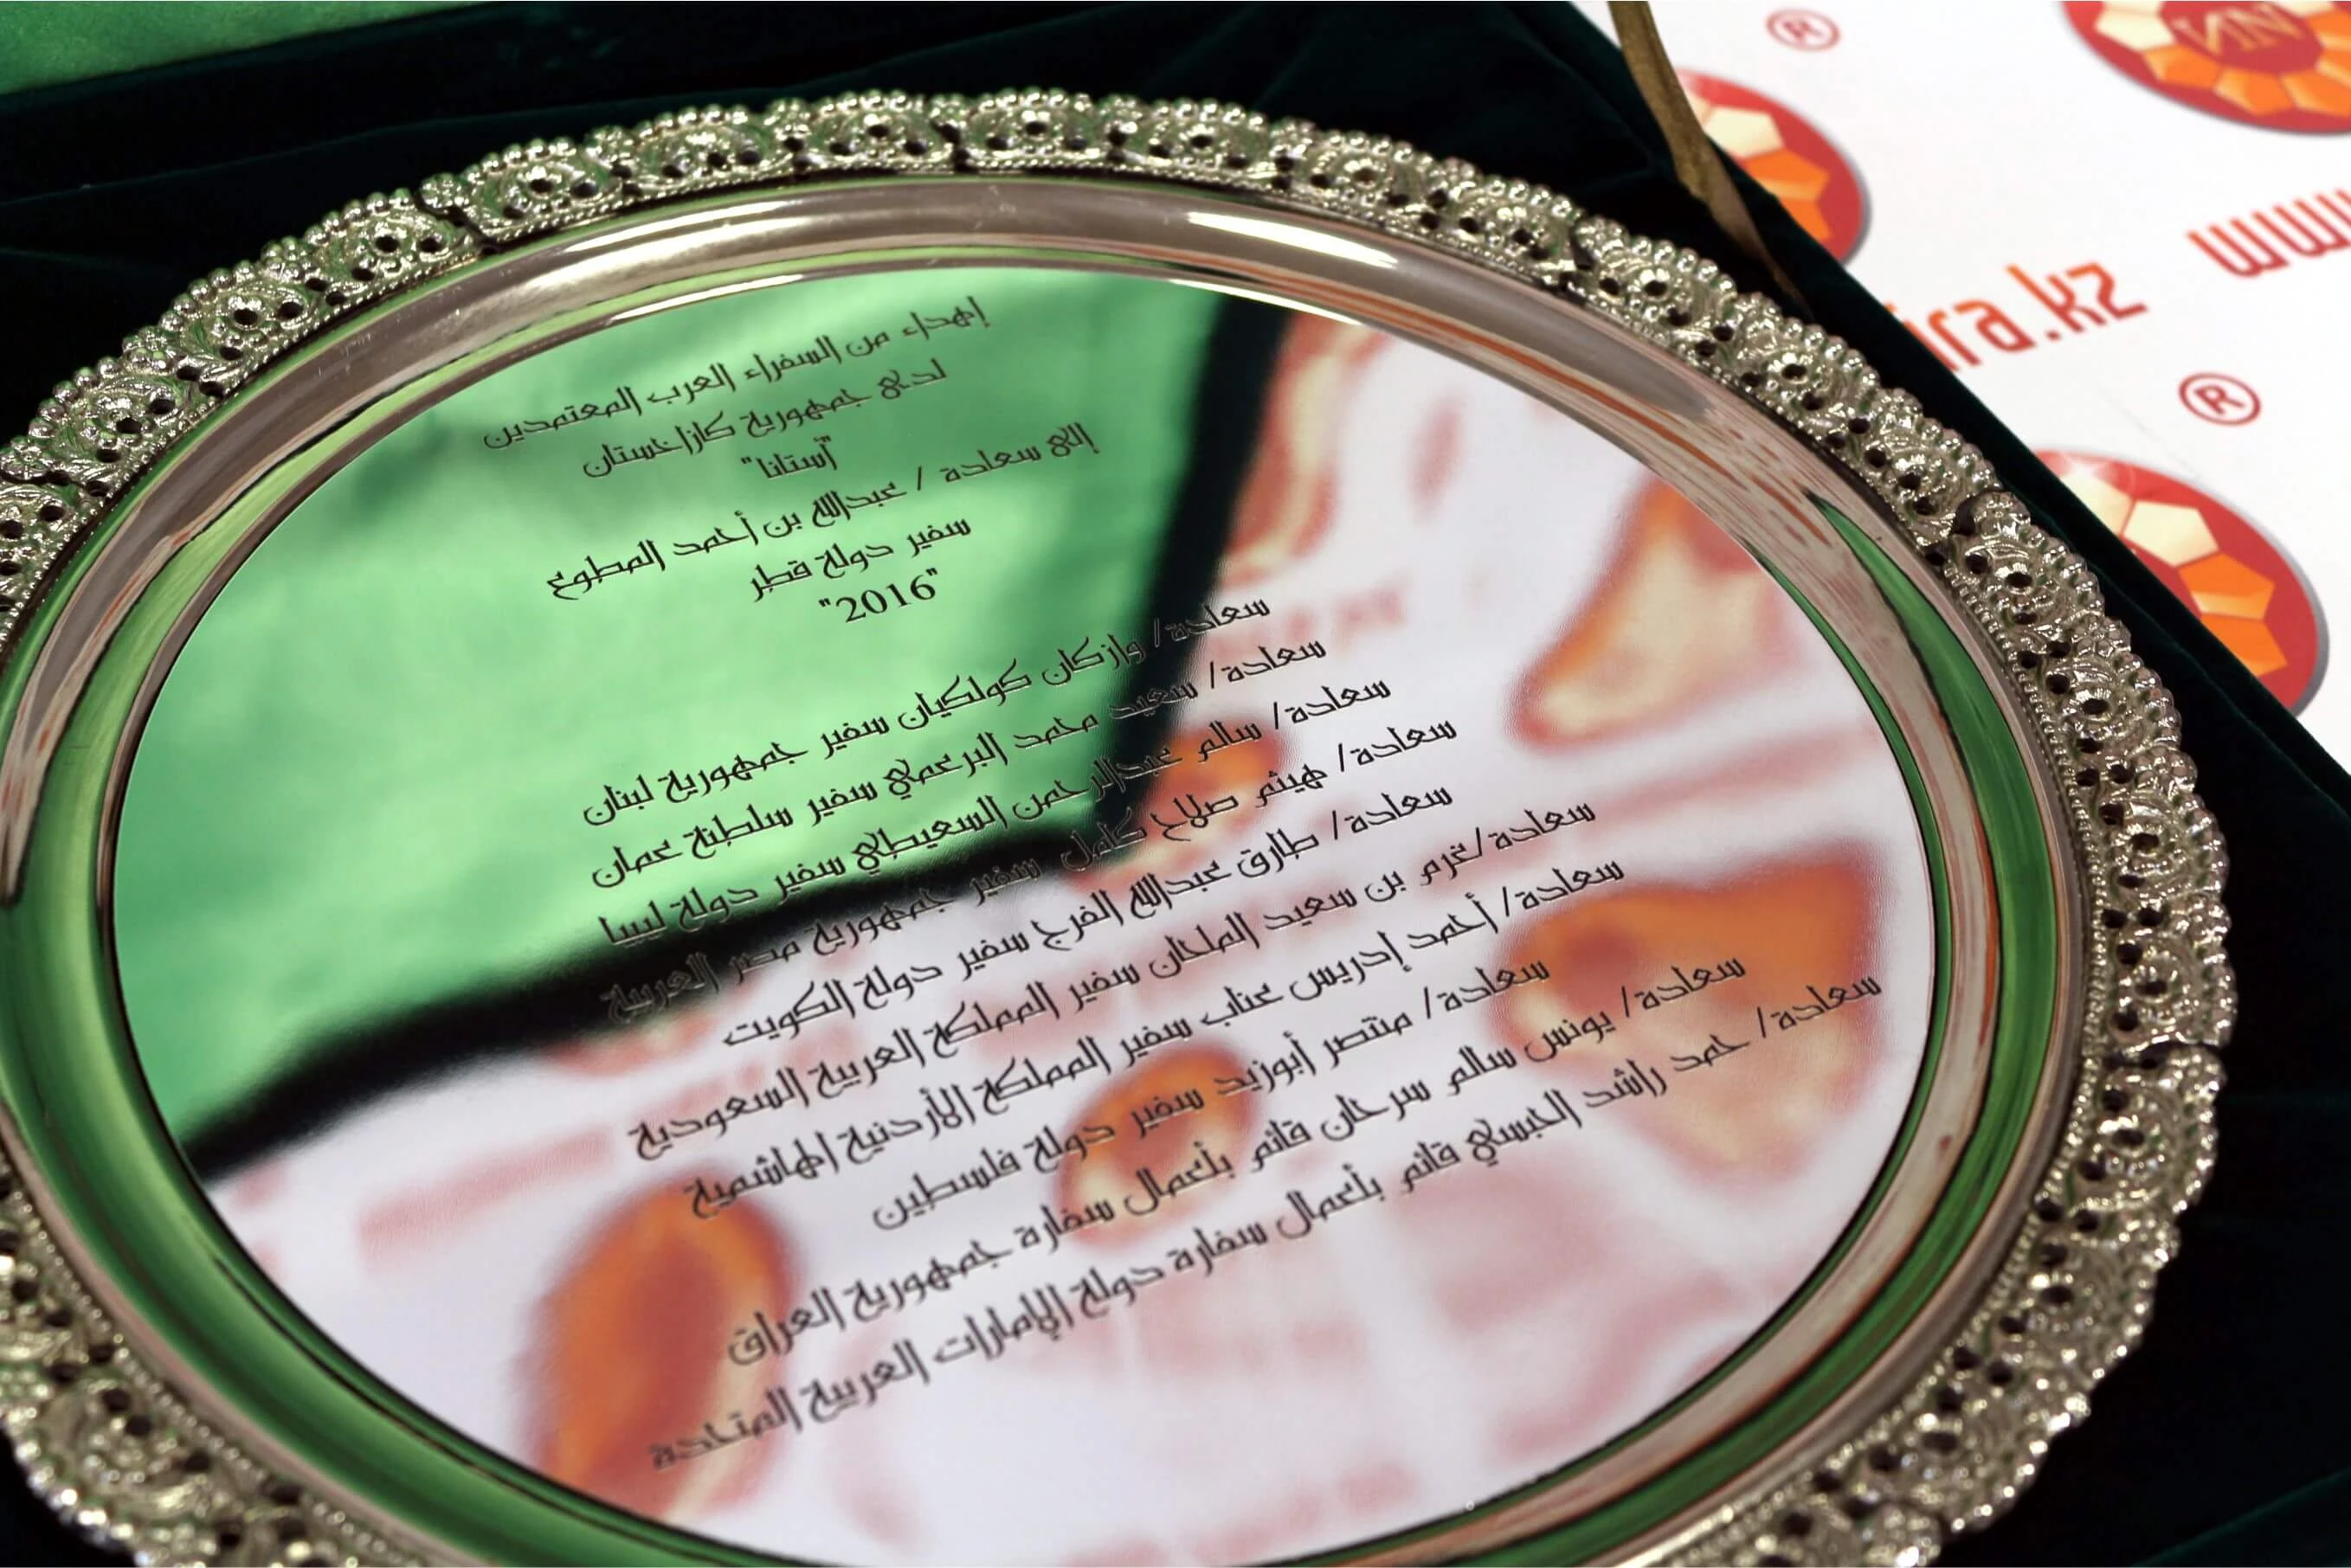 إهداء من السفراء العرب المعتمدين
لدى جمهورية كازاخستان
"آستانا"
إلى سعادة / عبدالله بن أحمد المطوع
سفير دولة قطر
"2016"
سعادة/ وازكان كولكيان سفير جمهورية لبنان
سعادة/ سعيد محمد البرعمي سفير سلطنة عمان
سعادة/ سالم عبدالرحمن السعيطي سفير دولة ليبيا
سعادة/ هيثم صلاح كامل سفير جمهورية مصر العربية
سعادة/ طارق عبدالله الفرج سفير دولة الكويت
سعادة/غرم بن سعيد الملحان سفير المملكة العربية السعودية
سعادة/ أحمد إدريس عناب سفير المملكة الأردنية الهاشمية
سعادة/ منتصر أبوزيد سفير دولة فلسطين
سعادة/ يونس سالم سرحان قائم بأعمال سفارة جمهورية العراق
سعادة/ حمد راشد الحبسي قائم بأعمال سفارة دولة الإمارات العربية المتحدة
®
www
ira.kz
®